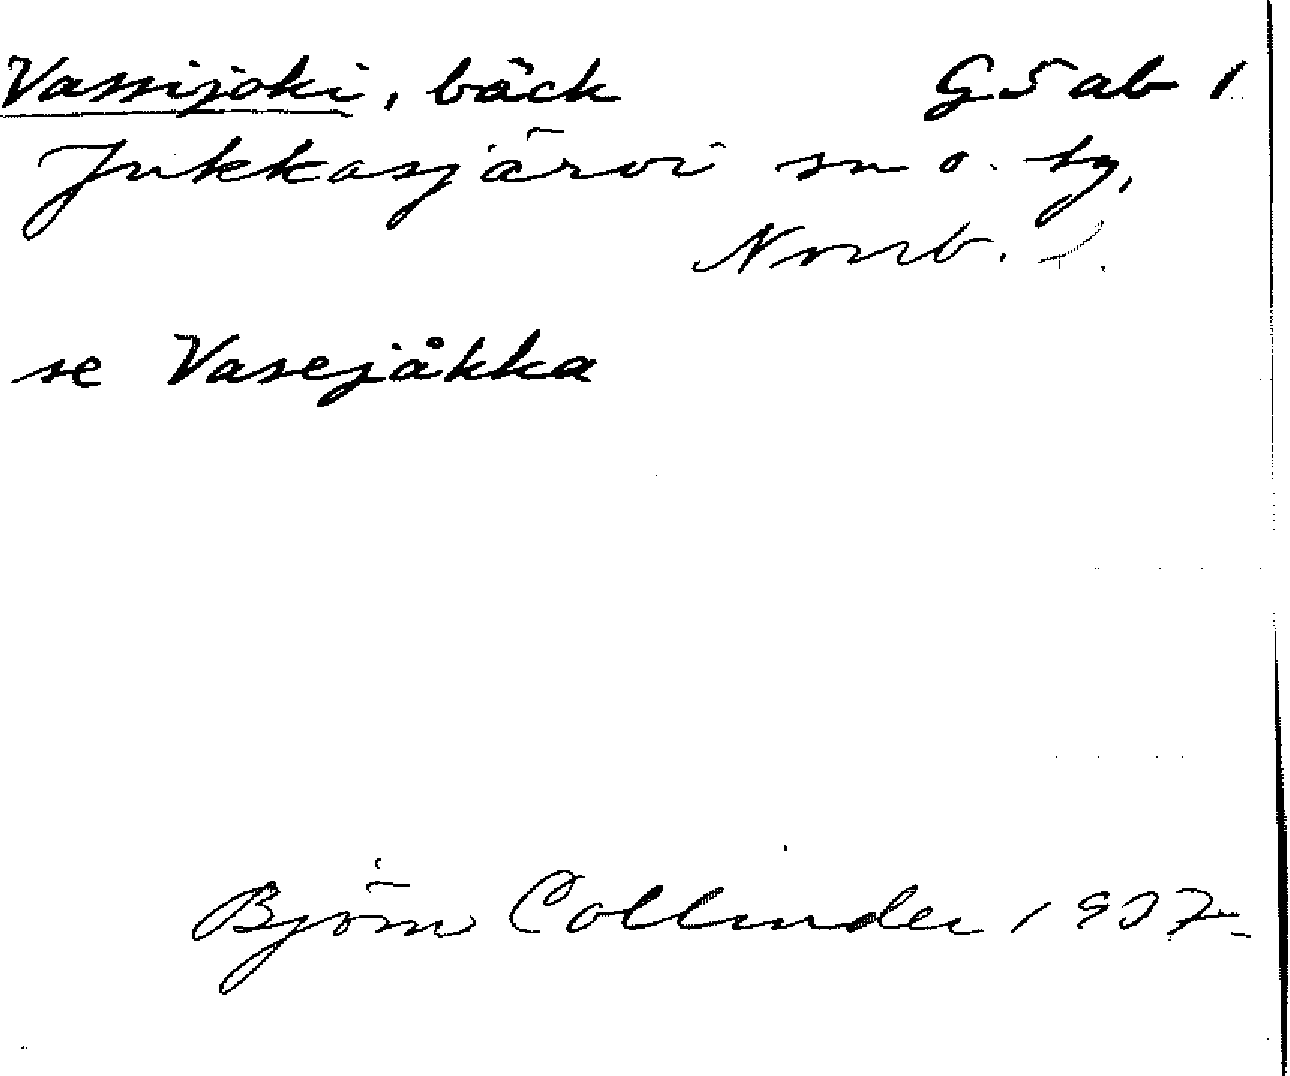 Vassijoki, bäck G5ab 1
Jukkasjärvi sn o. tg,
Norrb. l.
se Vasejåkka
Björn Collinder 1907-